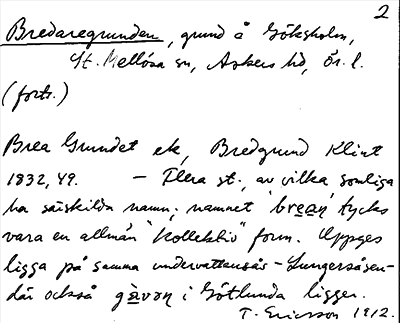 2
Bredaregrunden, grund å Göksholm,
St. Mellösa sn, Askers hd, Ör. l.
(forts.)
Brea Grundet ek, Bredgrund Klint
1832, 49. – Flera st., av vilka somliga
ha särskilda namn; namnet breaṇ tycks
vara en allmän "kollektiv" form. Uppges
ligga på samma undervattensås – Lungersåsen –
där också gàvoṇ i Götlunda ligger.
T. Ericsson 1912.